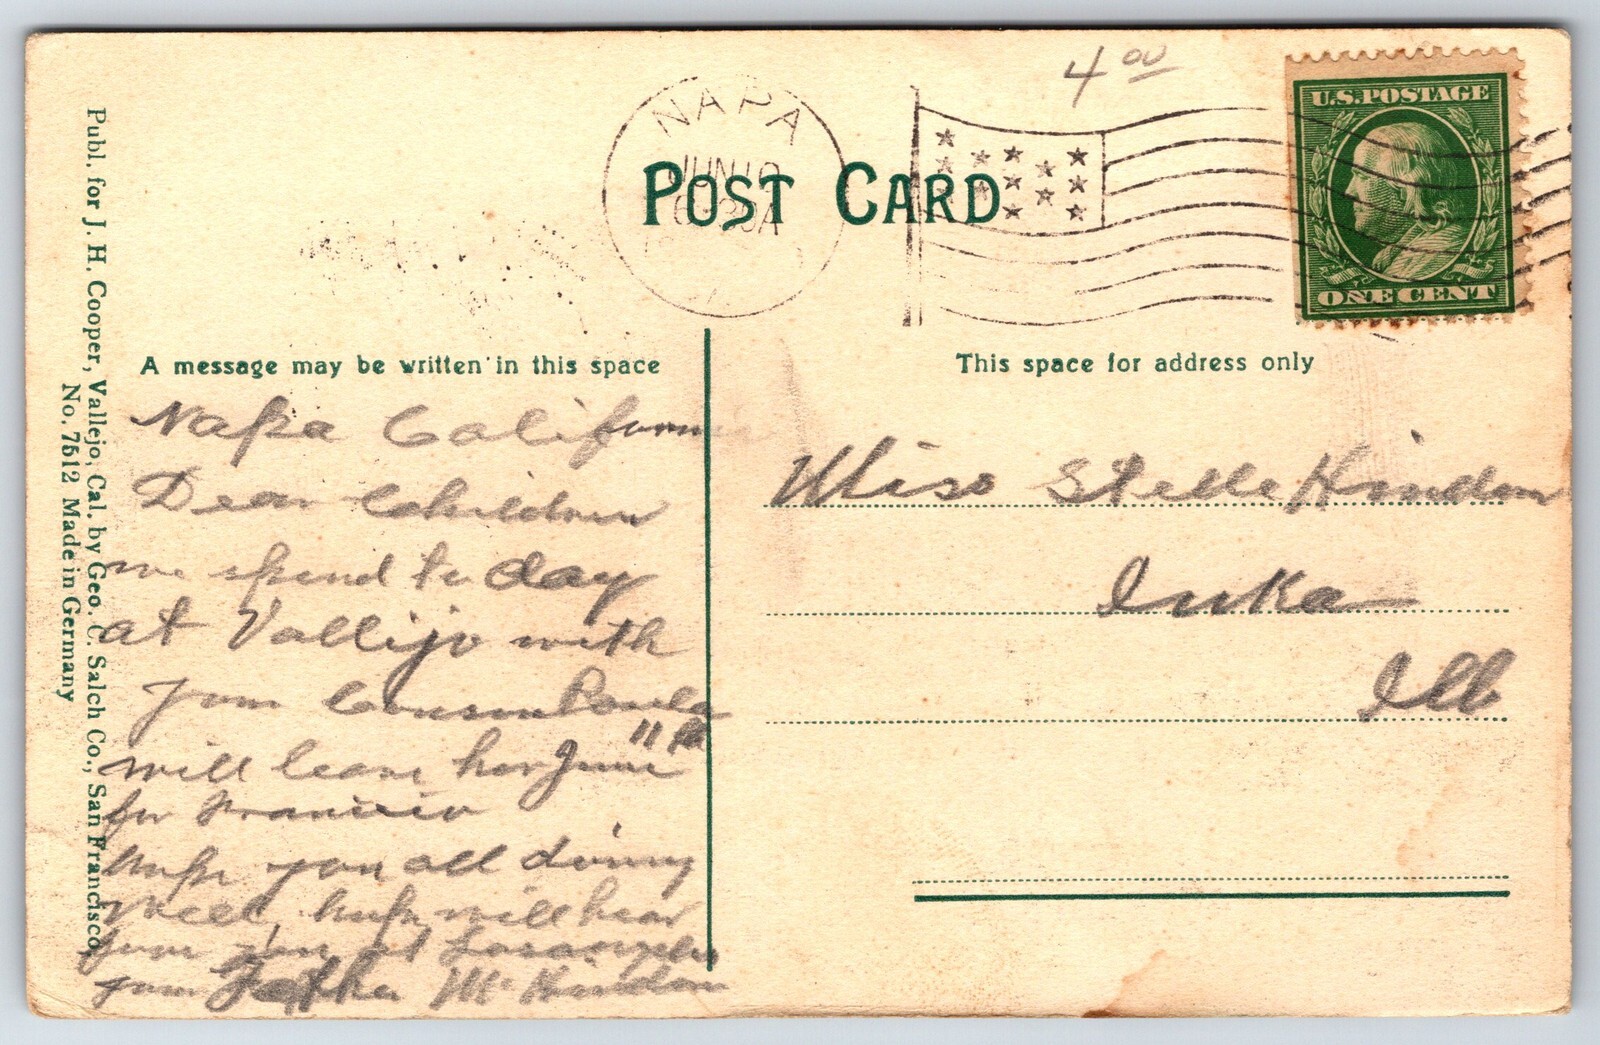 4 00
U.S.POSTAGE
ONE CENT
NAPA
JUN 10
6-30A
POST CARD
A message may be written in this space
This space for address only
Napa California
Dear Children
we spend to day
at Vallijo with
your Cousin
will leave her June 11th
for
hope you all doing
Well, hope will hear
from you at Losangeles
your Father McKindom
Miss Stelle Kindom
Iuka
Ill
Publ. for J. H. Cooper, Vallejo, Cal. by Geo. C. Salch Co., San Francisco,
No. 7512 Made in Germany